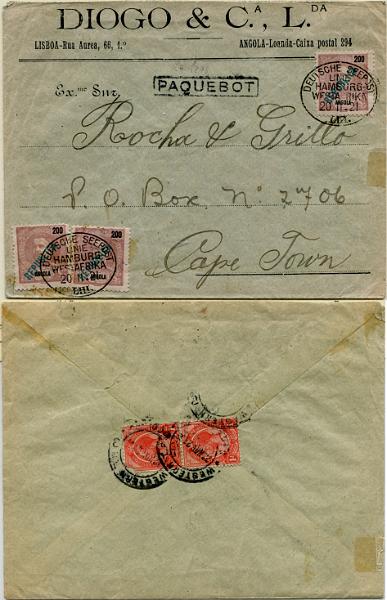 DIOGO & C.A, L.DA
LISBOA-Rua Aurea, 66, 1.º
ANGOLA-Loanda-Caixa postal 294
200
ANGOLA
DEUTSCHE SEEPOST
LINIE
HAMBURG-
WESTAFRIKA
PAQUEBOT
Ex.mo Snr.
Rocha & Grillo
P. O. Box, Nº 2706
Cape Town
200
200
DEUTSCHE SEEPOST
LINIE
HAMBURG-
WESTAFRIKA
LIII.
ANGOLA
WESTERN
WESTERN